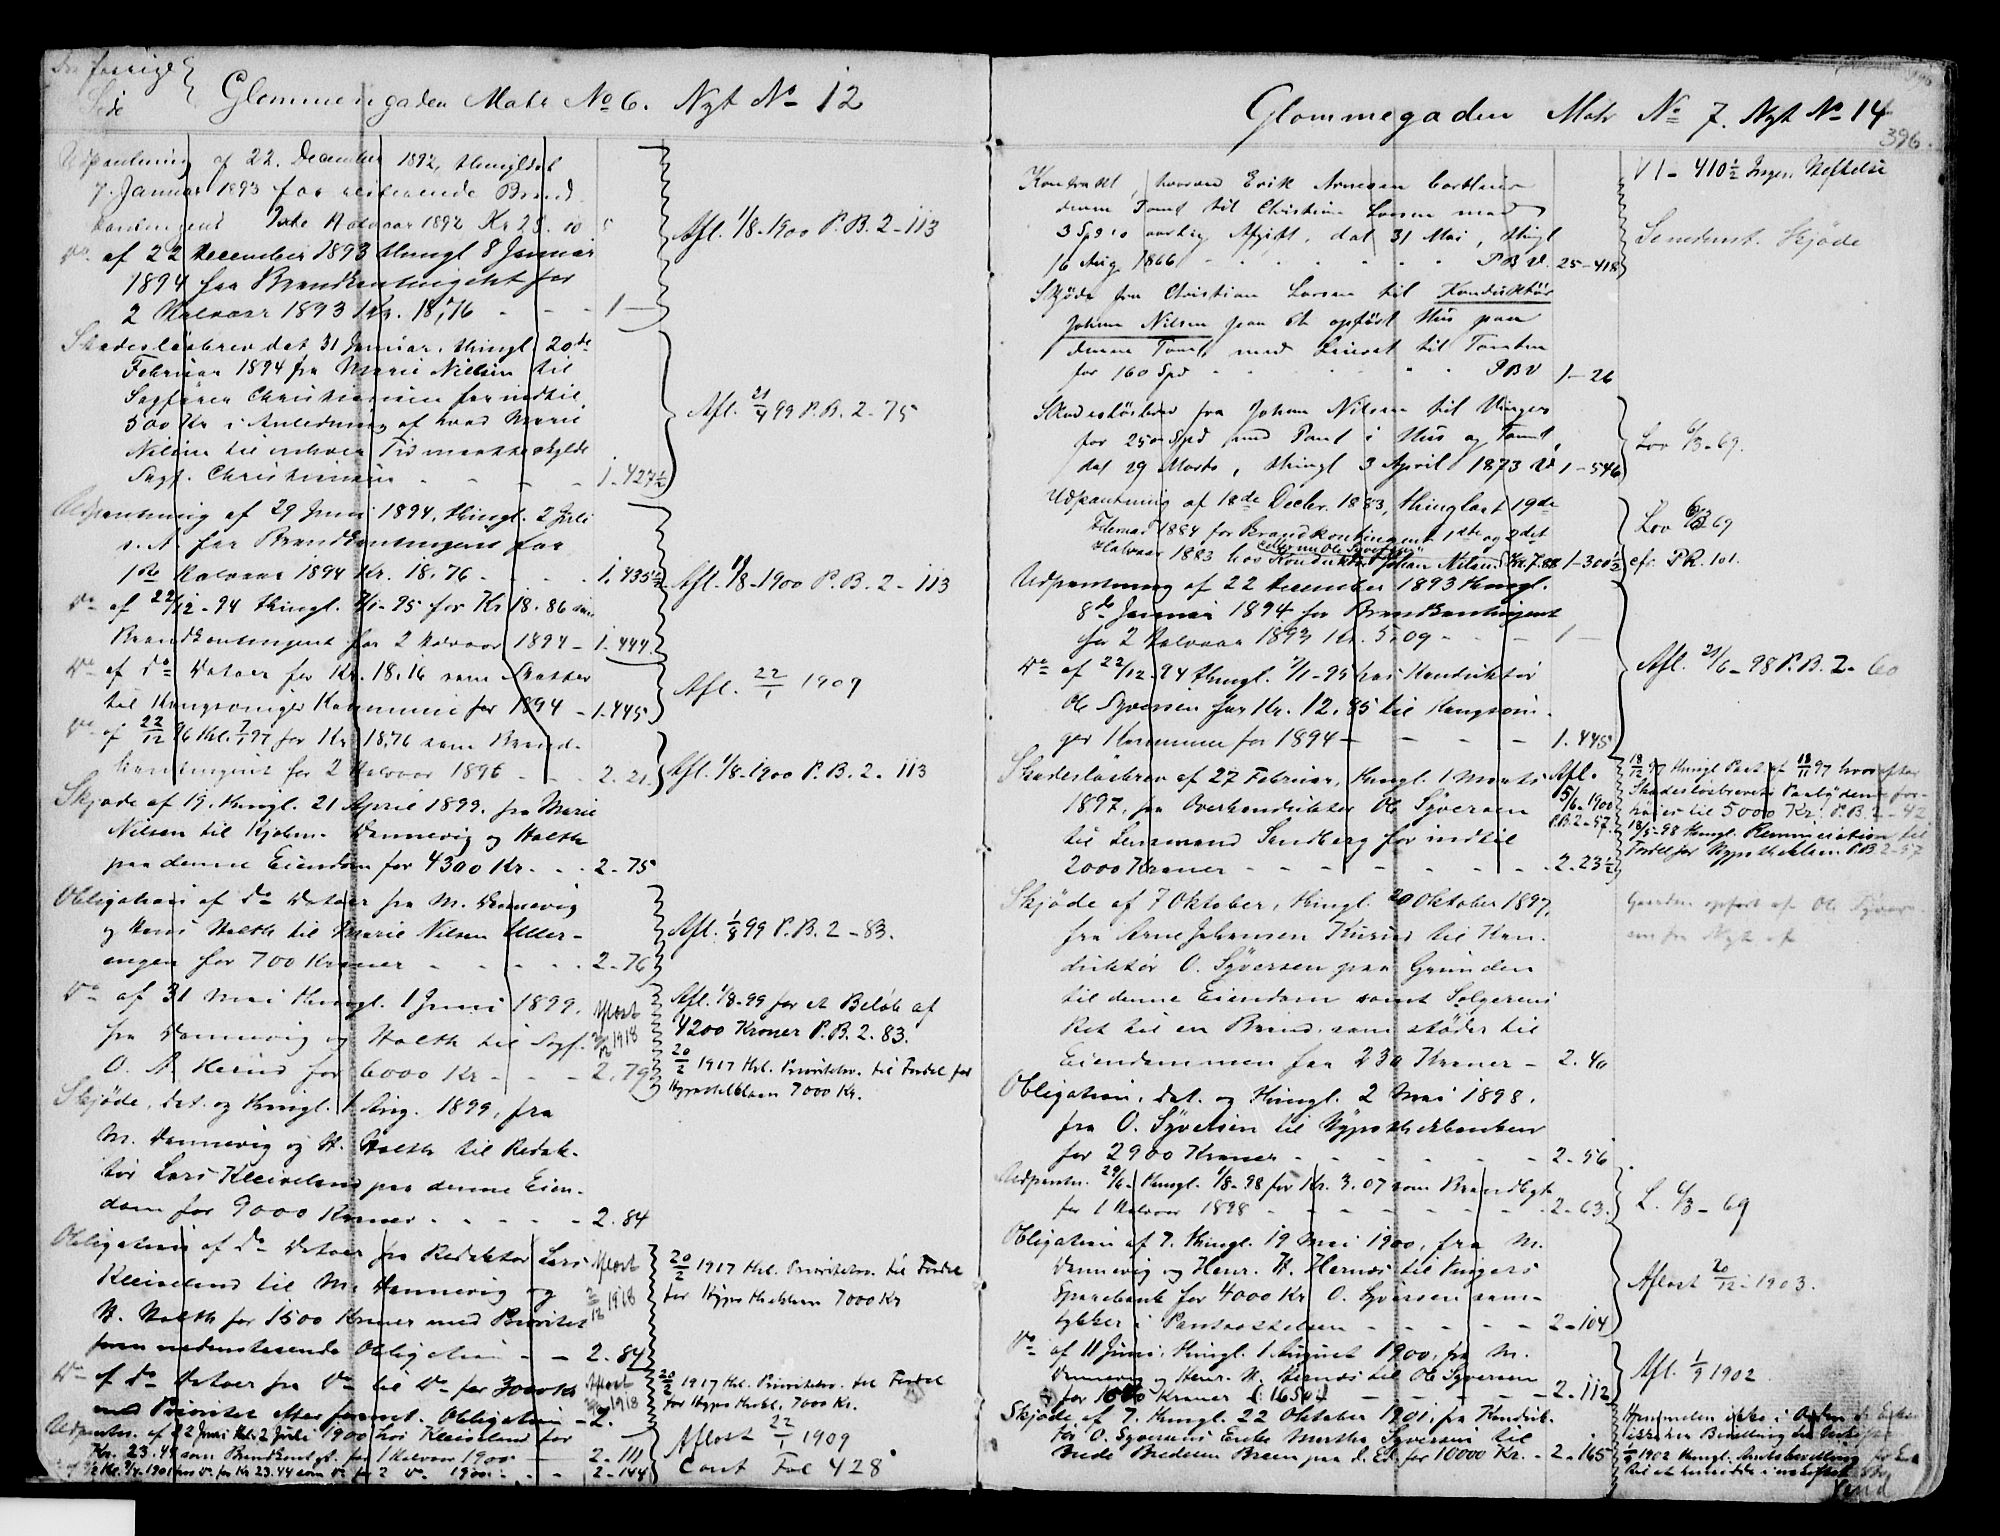 forrige
Side
Glommengaden Matr No 6. Nyt No 12
Udpantning af 22. December 1892, thinglæst
7. Januar 1893 for resterende Brand-
kontingent Halvaar 1892 Kr 23.10
Do af 22 December 1893 thingl 8 Januar
1894 for Brandkontingent for
2 Halvaar 1893 Kr. 18,76 - - - 1 -
Afl. 1/8-1900 P.B. 2-113
Skadesløsbrev dat 31 Januar, thingl 20de
Februar 1894 fra Marie Nielsen til
Sagfører Christiansen for indtil
500 Kr i Anledning af hvad Marie
Nielsen til enhver Tid maatte skylde
Sagf. Christiansen - - - - 1-427½
Afl. 21/4 99 P.B. 2-75
Udpantning af 29 Juni 1894, thingl. 2 Juli
s. A. for Brandkontingent for
1ste Halvaar 1894 Kr. 18,76 - - - - 1.435½
Afl. 1/8-1900 P.B. 2-113
Do af 22/12-94 thingl. 7/1-95 for Kr 18.86 som
Brandkontingent for 2 Halvaar 1894 - 1-444
Do af Do Datoer for Kr. 18,16 som Skatter
til Kongsvinger Kommune for 1894 - 1-445
Afl. 22/1 1909
Do af 22/12 96 thl. 7/1 97 for Kr 18,76 som Brand-
kontingent for 2 Halvaar 1896 - - - 2-21
Afl. 1/8-1900 P.B. 2-113
Skjøde af 19, thingl. 21 April 1899, fra Marie
Nilsen til Kjøbm. Dannevig og Holth
paa denne Eiendom for 4300 Kr. - - 2-75
Obligation af Do Datoer fra M. Dannevig
og Hans Holth til Marie Nilsen Uller-
engen for 700 Kroner - - - - - 2-76
Afl. 1/8 99 P.B. 2-83.
Do af 31 Mai thingl. 1 Juni 1899,
fra Dannevig og Holth til Sagf.
O. A. Herud for 6000 Kr - - - 2.79
Afløst
1918
Afl. 1/8-99 for et Beløb af
4200 Kroner P.B. 2.83.
20/2 1917 thl. Prioritetsv. til Fordel for
Hypothekbken 7000 Kr.
Skjøde, dat. og thingl. 1 Aug. 1899, fra
M. Dannevig og H. Holth til Redak-
tør Lars Kleiveland paa denne Eien-
dom for 9000 Kroner - - - - - 2.84
Obligation af Do Datoer fra Redaktør Lars
Kleiveland til M. Dannevig og
H. Holth for 1500 Kroner med Prioritet
foran nedenstaaende Obligation - - 2.84
Afløst
1918
20/2 1917 thl. Prioritetsv. til Fordel
for Hypothekbken 7000 Kr
Do af Do Datoer fra Do til Do for 3000 Kr
med Prioritet efter foranst. Obligation - 2.
Afløst
1918
20/2 1917 thl. Prioritetsv. til Fordel
for Hypothekb. 7000 Kr.
Udpantn. af 22 Juni thl. 2 Juli 1900 hos Kleiveland for
Kr. 23.44 som Brandkontgt. for 1 Halvaar 1900 - - 2-111
1901 hos Do for Kr 23.44 som Do for 2 Do 1900 - - - 2-144
Afløst 22/1 1909
Cont Fol 428
Glommegaden Matr No 7. Nyt No 14
396.
Kontrakt, hvorved Erik Arnesen bortleier
denne Tomt til Christian Larsen mod
3 Spd aarlig Afgift, dat 31 Mai, thingl
16 Aug 1866 - - - - P B V. 25-418
VI-410½ Ingen Heftelse
Skjøde
Skjøde fra Christian Larsen til Konduktør
Johan Nilsen paa et opført Hus paa
denne Tomt, med Leieret til Tomten
for 160 Spd - - - - - P B V 1-26
Skadesløsbrev fra Johan Nilsen til
for 250 Spd med Pant i Hus og Tomt,
dat 29 Marts, thingl 3 April 1873 1-546
Lov 6/3-69.
Udpantning af 18de Decbr. 1883, thinglæst 19de
Februar 1884 for Brandkontingent 1ste og 2det
Halvaar 1883 hos Konduktør Johan Nilsen Kr. 7.88 1-300½
eller nu Ole Syversen
Lov 6/3 69
cfr. P.R. 101.
Udpantning af 22 December 1893 thingl.
8de Januar 1894 for Brandkontingent
for 2 Halvaar 1893 Kr. 5.09 - - - 1 -
Do af 22/12-94 thingl. 7/1-95 hos Konduktør
Ole Syversen for Kr. 12,85 til Kongsvin-
ger Kommune for 1894 - - - - 1.445
Afl. 21/6-98 P.B. 2-60
Skadesløsbrev af 27 Februar, thingl. 1 Marts
1897, fra Overkonduktør Ole Syversen
til Lensmand Sandberg for indtil
2000 Kroner - - - - - - - 2.23½
Afl.
5/6-1900
P.B. 2-97.
18/12 97 thingl Paat. af 18/11 97 hvorefter
Skadesløsbrevets Paalydende for-
høies til 5000 Kr. P.B. 2-42
18/5-98 thingl. Renunciation til
Fordel for Hypothekbken P.B 2-57
Skjøde af 7 Oktober, thingl. 20 Oktober 1897,
fra Arne Johansen Kurud til Kon-
duktør O. Syversen paa Grunden
til denne Eiendom samt Sælgerens
Ret til en Brønd, som støder til
Eiendommen for 230 Kroner - 2.40
Gaarden opført af Ole Syver-
sen fra Nyt af
Obligation, dat. og thingl. 2 Mai 1898,
fra O. Syversen til Hypothekbanken
for 2900 Kroner - - - - - - 2-56
Udpantn. 29/6 thingl. 1/8-98 for Kr. 3.07 som Brandkgt
for 1 Halvaar 1898 - - - - - - 2-63.
L. 6/3-69
Obligation af 7. thingl. 19 Mai 1900, fra M.
Dannevig og Henr. H. Hernæs til Vingers
Sparebank for 4000 Kr. O. Syversen sam-
tykker i Pantsættelsen - - - - - 2-104
Afløst 20/12-1903.
Do af 11 Juni, thingl. 1 August 1900, fra M.
Dannevig og Henr. H. Hernæs til Ole Syversen
for 1650 Kroner (1650) - - - - 2-112
Afl. 1/9 1902
Skjøde af 7. thingl. 22 Oktober 1901, fra Konduk-
tør O. Syversens Enke Marthe Syversen til
Brede Bredesen Braen paa d. Ed. for 10000 Kr. - 2-165
Hjemmelen ikke i Orden
1902 thingl. Amtsbevilling for
til at hensidde i uskiftet Bo
Vend